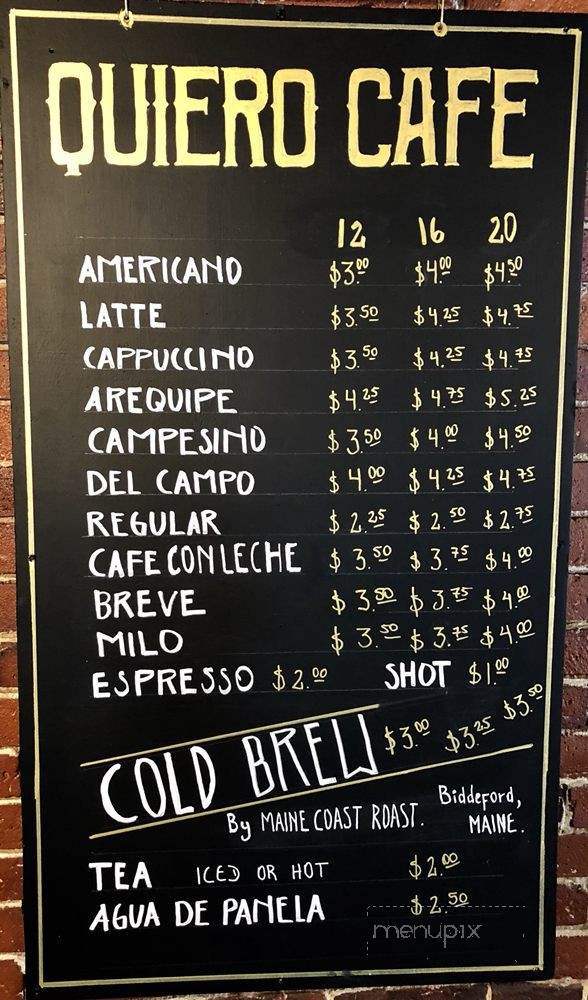 QUIERO CAFE
12 16 20
AMERICANO $3.00 $4.00 $4.50
LATTE $3.50 $4.25 $4.75
CAPPUCCINO $3.50 $4.25 $4.75
AREQUIPE $4.25 $4.75 $5.25
CAMPESINO $3.50 $4.00 $4.50
DEL CAMPO $4.00 $4.25 $4.75
REGULAR $2.25 $2.50 $2.75
CAFE CON LECHE $3.50 $3.75 $4.00
BREVE $3.50 $3.75 $4.00
MILO $3.50 $3.75 $4.00
ESPRESSO $2.00 SHOT $1.00
COLD BREW $3.00 $3.25 $3.50
By MAINE COAST ROAST. Biddeford, MAINE.
TEA ICED OR HOT $2.00
AGUA DE PANELA $2.50
menupix